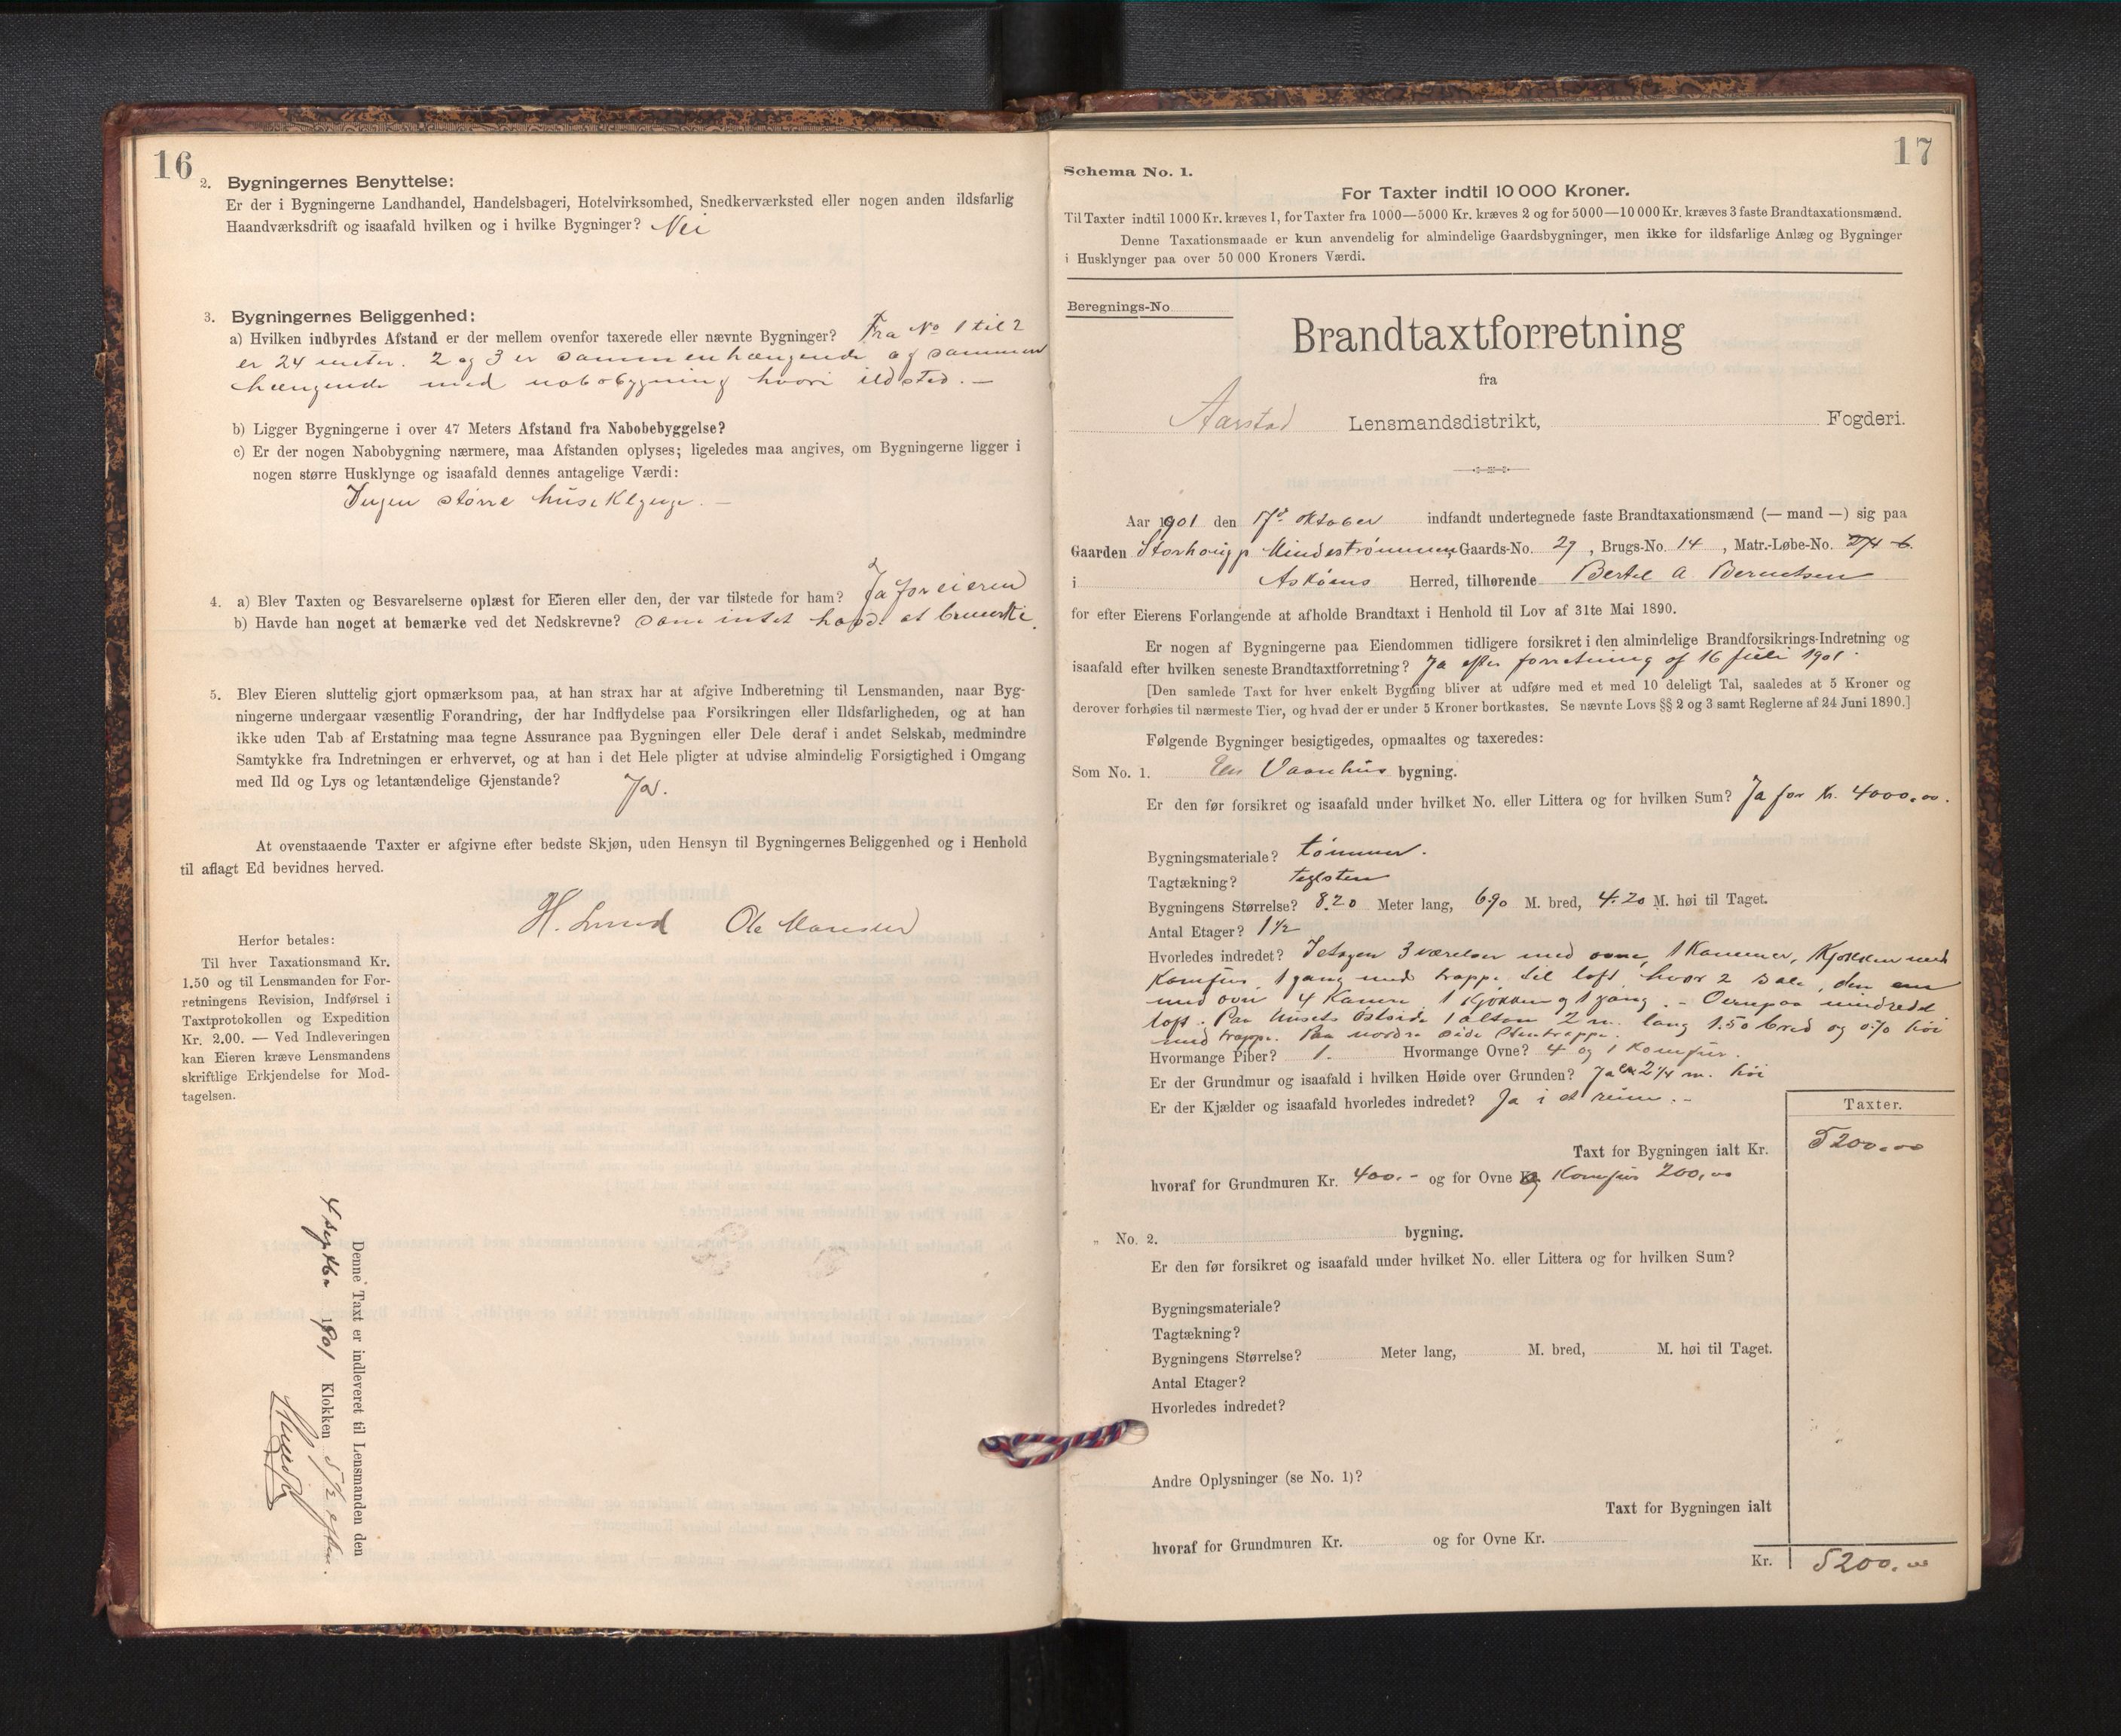 16
2. Bygningernes Benyttelse:
Er der i Bygningerne Landhandel, Handelsbageri, Hotelvirksomhed, Snedkerværksted eller nogen anden ildsfarlig
Haandværksdrift og isaafald hvilken og i hvilke Bygninger? Nei
3. Bygningernes Beliggenhed:
a) Hvilken indbyrdes Afstand er der mellem ovenfor taxerede eller nævnte Bygninger? Fra No 1 til 2
er 24 meter. 2 og 3 er sammenhængende og sammen
hængende med nabobygning hvori ildsted. —
b) Ligger Bygningerne i over 47 Meters Afstand fra Nabobebyggelse?
c) Er der nogen Nabobygning nærmere, maa Afstanden oplyses; ligeledes maa angives, om Bygningerne ligger i
nogen større Husklynge og isaafald dennes antagelige Værdi:
Ingen større husklynge. —
4. a) Blev Taxten og Besvarelserne oplæst for Eieren eller den, der var tilstede for ham? Ja for eieren
b) Havde han noget at bemærke ved det Nedskrevne? som intet havde at bemerke.
5. Blev Eieren sluttelig gjort opmærksom paa, at han strax har at afgive Indberetning til Lensmanden, naar Byg-
ningerne undergaar væsentlig Forandring, der har Indflydelse paa Forsikringen eller Ildsfarligheden, og at han
ikke uden Tab af Erstatning maa tegne Assurance paa Bygningen eller Dele deraf i andet Selskab, medmindre
Samtykke fra Indretningen er erhvervet, og at han i det Hele pligter at udvise almindelig Forsigtighed i Omgang
med Ild og Lys og letantændelige Gjenstande? Ja.
At ovenstaaende Taxter er afgivne efter bedste Skjøn, uden Hensyn til Bygningernes Beliggenhed og i Henhold
til aflagt Ed bevidnes herved.
H. Lund Ole Monsen
Herfor betales:
Til hver Taxationsmand Kr.
1.50 og til Lensmanden for For-
retningens Revision, Indførsel i
Taxtprotokollen og Expedition
Kr. 2.00. — Ved Indleveringen
kan Eieren kræve Lensmandens
skriftlige Erkjendelse for Mod-
tagelsen.
Denne Taxt er indleveret til Lensmanden den
4 septbr 1901 Klokken 5 1/2 efter.
17
Schema No. 1.
For Taxter indtil 10 000 Kroner.
Til Taxter indtil 1000 Kr. kræves 1, for Taxter fra 1000—5000 Kr. kræves 2 og for 5000—10 000 Kr. kræves 3 faste Brandtaxationsmænd.
Denne Taxationsmaade er kun anvendelig for almindelige Gaardsbygninger, men ikke for ildsfarlige Anlæg og Bygninger
i Husklynger paa over 50 000 Kroners Værdi.
Beregnings-No
Brandtaxtforretning
fra
Aarstad Lensmandsdistrikt, Fogderi.
Aar 1901 den 17d oktober indfandt undertegnede faste Brandtaxationsmænd (— mand —) sig paa
Gaarden Storhaug p Mindestrømmen Gaards-No. 29, Brugs-No. 14, Matr.-Løbe-No. 274 b.
i Askøens Herred, tilhørende Bertel A. Berntsen
for efter Eierens Forlangende at afholde Brandtaxt i Henhold til Lov af 31te Mai 1890.
Er nogen af Bygningerne paa Eiendommen tidligere forsikret i den almindelige Brandforsikrings-Indretning og
isaafald efter hvilken seneste Brandtaxtforretning? Ja efter forretning af 16 juli 1901.
[Den samlede Taxt for hver enkelt Bygning bliver at udføre med et med 10 deleligt Tal, saaledes at 5 Kroner og
derover forhøies til nærmeste Tier, og hvad der er under 5 Kroner bortkastes. Se nævnte Lovs §§ 2 og 3 samt Reglerne af 24 Juni 1890.]
Følgende Bygninger besigtigedes, opmaaltes og taxeredes:
Som No. 1. En Vaanhus bygning.
Er den før forsikret og isaafald under hvilket No. eller Littera og for hvilken Sum? Ja for Kr. 4000.00.
Bygningsmateriale? tømmer.
Tagtækning? teglsten
Bygningens Størrelse? 8.20 Meter lang, 6.90 M. bred, 4.20 M. høi til Taget.
Antal Etager? 1 1/2
Hvorledes indredet? I etagen 3 værelser med ovne, 1 Kammer, Kjøkken med
Komfur, 1 gang med trappe til loft, hvor 2 sale, den ene
med ovn 4 Kamre, 1 Kjøkken og 1 gang. - Ovenpaa uindredt
loft. Paa husets østside 1 altan 2 m. lang 1.50 bred og 0.70 høi
med trappe. Paa nordre side stentrappe.
Hvormange Piber? 1. Hvormange Ovne? 4 og 1 Komfur.
Er der Grundmur og isaafald i hvilken Høide over Grunden? Ja ca 2 1/4 m. høi
Er der Kjælder og isaafald hvorledes indredet? Ja i et rum. -
Taxter.
Taxt for Bygningen ialt Kr. 5200.00
hvoraf for Grundmuren Kr. 400.- og for Ovne og Komfur 200,00
„ No. 2. bygning.
Er den før forsikret og isaafald under hvilket No. eller Littera og for hvilken Sum?
Bygningsmateriale?
Tagtækning?
Bygningens Størrelse? Meter lang, M. bred, M. høi til Taget.
Antal Etager?
Hvorledes indredet?
Andre Oplysninger (se No. 1)?
Taxt for Bygningen ialt
hvoraf for Grundmuren Kr. og for Ovne Kr.
Kr. 5200.00